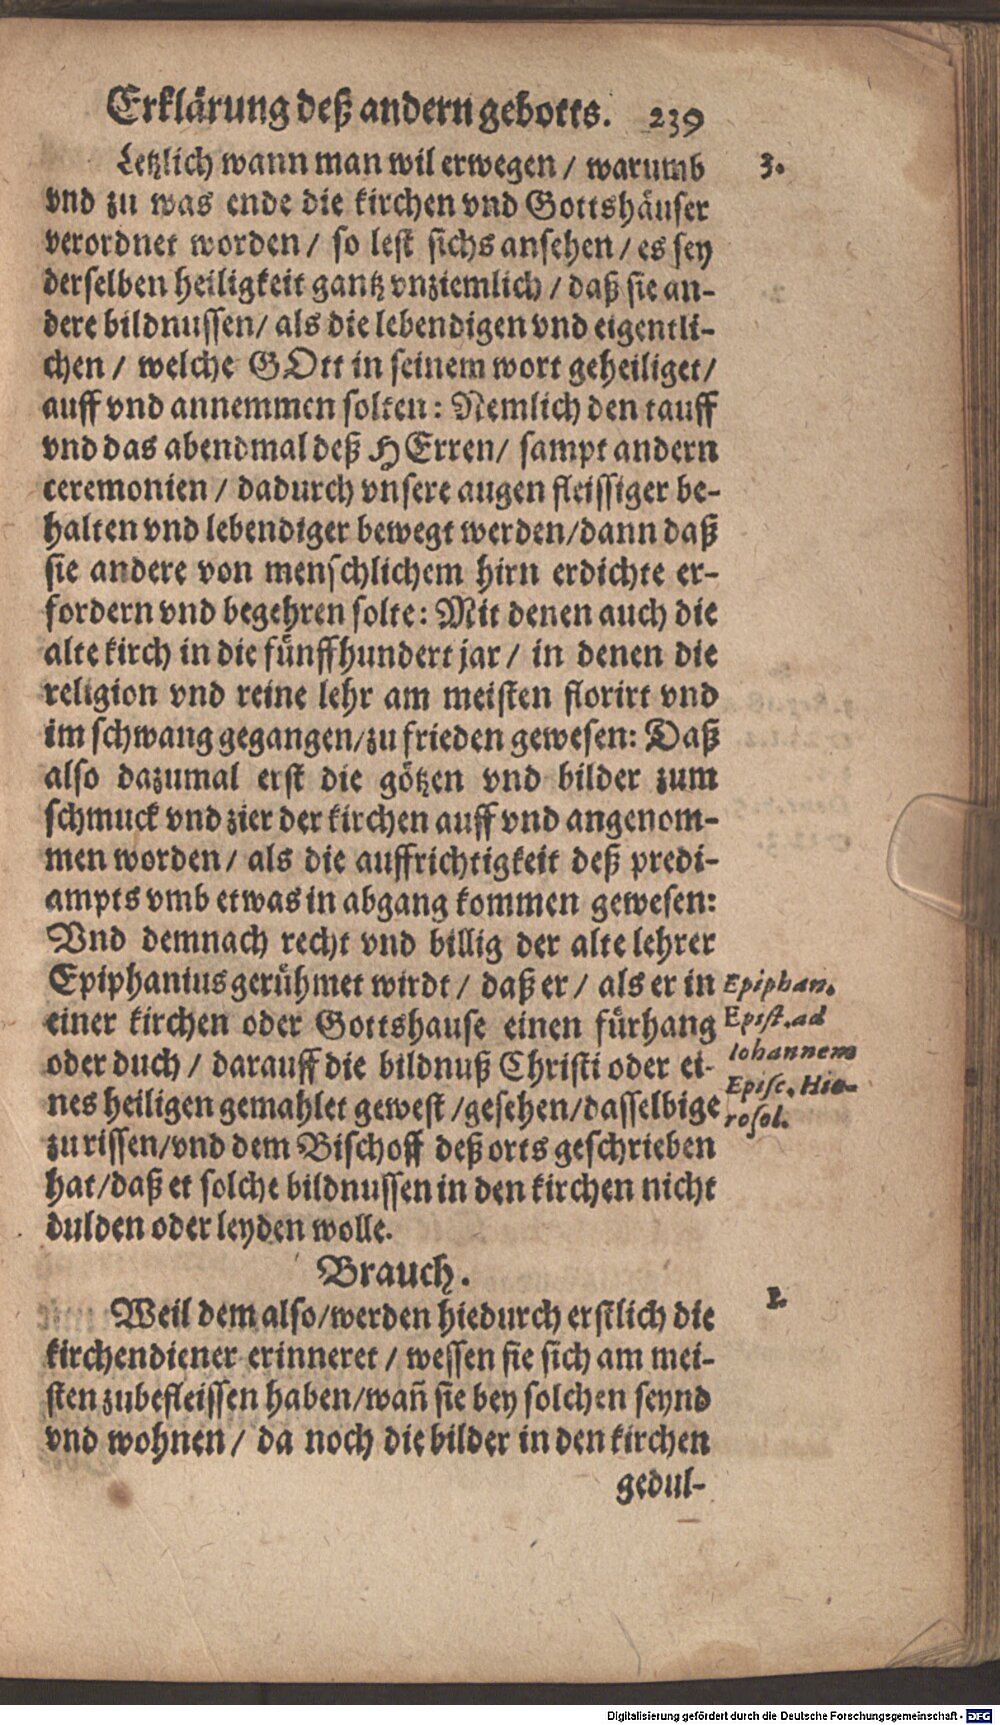 Erklärung deß andern gebotts. 239
Letzlich wann man wil erwegen / warumb
3.
vnd zu was ende die kirchen vnd Gottshäuser
verordnet worden / so lest sichs ansehen / es sey
derselben heiligkeit gantz vnziemlich / daß sie an-
dere bildnussen / als die lebendigen vnd eigentli-
chen / welche GOtt in seinem wort geheiliget /
auff vnd annemmen solten: Nemlich den tauff
vnd das abendmal deß HErren / sampt andern
ceremonien / dadurch vnsere augen fleissiger be-
halten vnd lebendiger bewegt werden / dann daß
sie andere von menschlichem hirn erdichte er-
fordern vnd begehren solte: Mit denen auch die
alte kirch in die fünffhundert jar / in denen die
religion vnd reine lehr am meisten florirt vnd
im schwang gegangen / zu frieden gewesen: Daß
also dazumal erst die götzen vnd bilder zum
schmuck vnd zier der kirchen auff vnd angenom-
men worden / als die auffrichtigkeit deß predi-
ampts vmb etwas in abgang kommen gewesen:
Vnd demnach recht vnd billig der alte lehrer
Epiphanius gerühmet wirdt / daß er / als er in
einer kirchen oder Gottshause einen fürhang
oder duch / darauff die bildnuß Christi oder ei-
nes heiligen gemahlet gewest / gesehen / dasselbige
zurissen / vnd dem Bischoff deß orts geschrieben
hat / daß et solche bildnussen in den kirchen nicht
dulden oder leyden wolle.
Epiphan.
Epist. ad
Iohannem
Episc. Hie-
rosol.
Brauch.
Weil dem also / werden hiedurch erstlich die
1.
kirchendiener erinneret / wessen sie sich am mei-
sten zubefleissen haben / wañ sie bey solchen seynd
vnd wohnen / da noch die bilder in den kirchen
gedul-
Digitalisierung gefördert durch die Deutsche Forschungsgemeinschaft - DFG